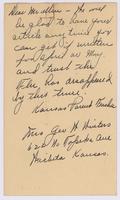 Dear Mr. Allen - We will
be glad to have your
article any time you
can get it written
for April or May
and trust the
Flu has disappeared
by that time.
Kansas Parent Teacher
Mrs Geo H Winters
626 N Topeka Ave
Wichita Kansas.